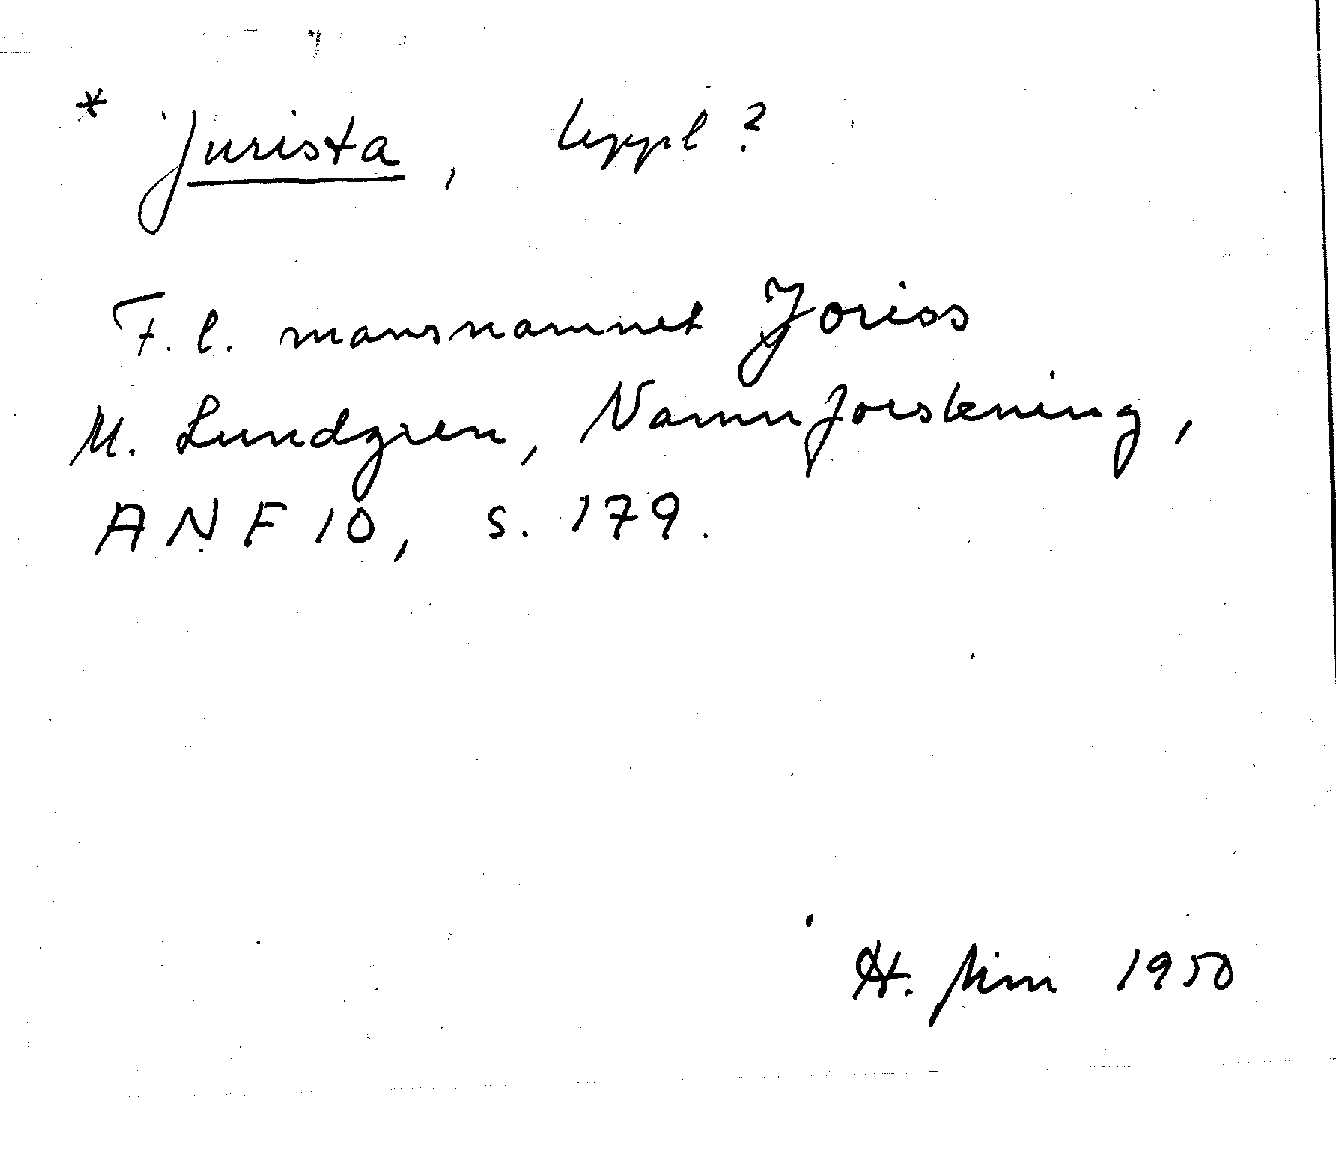 * Jurista, Uppl?
F. l. mansnamnet Joriss
M. Lundgren, Namnforskning,
ANF 10, s. 179.
H. 1950